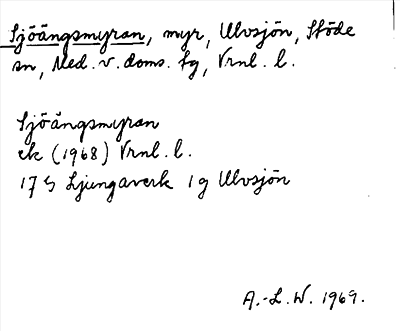 Sjöängsmyran, myr, Ulvsjön, Stöde
sn, Med. v. doms. tg, Vrnl. l.
Sjöängsmyran
ek (1968) Vrnl. l.
17 G Ljungaverk 1 g Ulvsjön
A.-L. W. 1969.